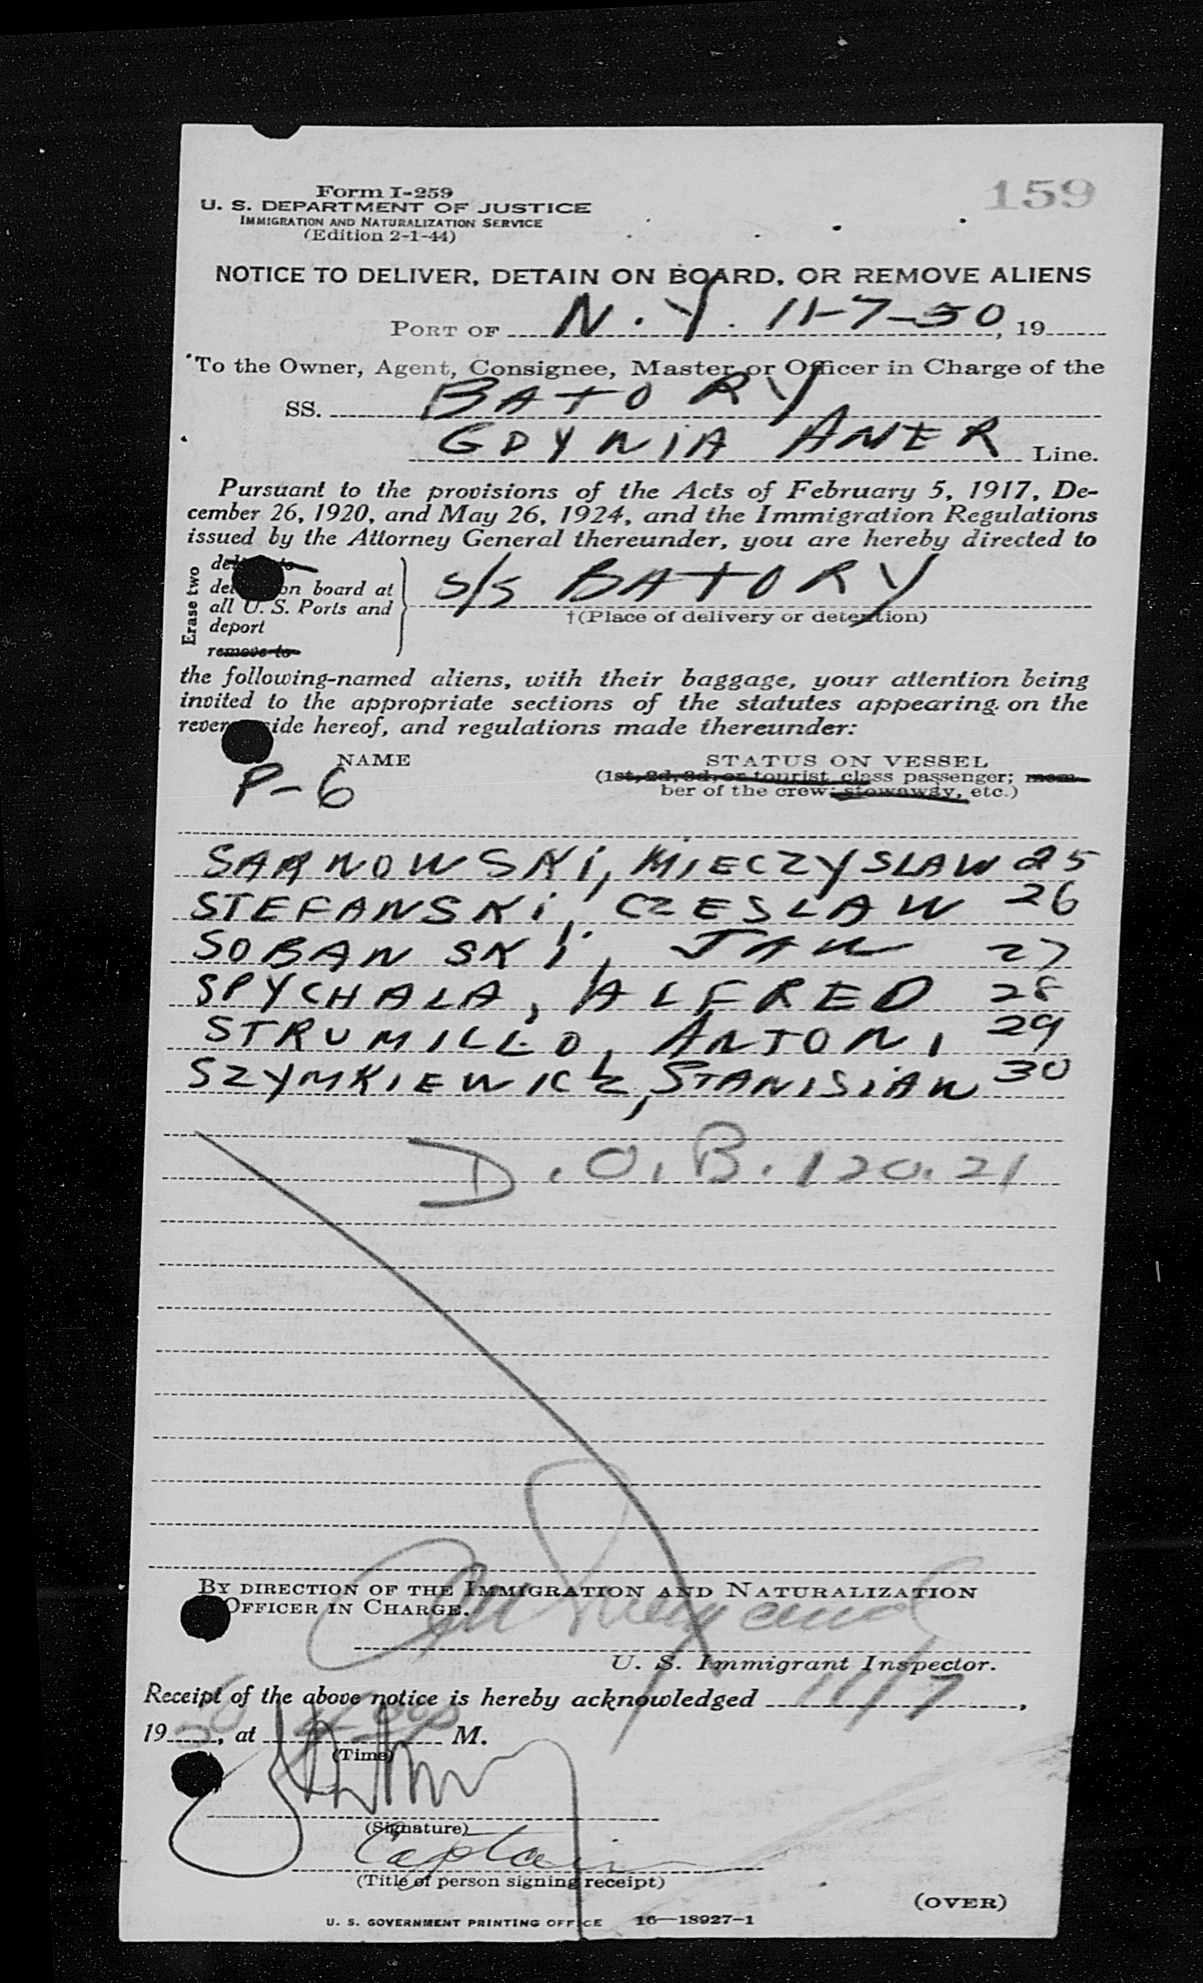 Form I-259
U. S. DEPARTMENT OF JUSTICE
IMMIGRATION AND NATURALIZATION SERVICE
(Edition 2-1-44)
159
NOTICE TO DELIVER, DETAIN ON BOARD, OR REMOVE ALIENS
PORT OF N. Y. 11-7-50, 19
To the Owner, Agent, Consignee, Master or Officer in Charge of the
SS. BATORY
GDYNIA AMER Line.
Pursuant to the provisions of the Acts of February 5, 1917, De-
cember 26, 1920, and May 26, 1924, and the Immigration Regulations
issued by the Attorney General thereunder, you are hereby directed to
Erase two
on board at
all U. S. Ports and
deport
remove to
S/S BATORY
†(Place of delivery or detention)
the following-named aliens, with their baggage, your attention being
invited to the appropriate sections of the statutes appearing on the
reverse side hereof, and regulations made thereunder:
NAME
STATUS ON VESSEL
(1st, 2d, 3d, or tourist class passenger; mem-
ber of the crew; stowaway, etc.)
P-6
SARNOWSKi, MiECZYSLAW 25
STEFANSKi, CZESLAW 26
SOBANSKi, JAN 27
SPYCHALA, ALFRED 28
STRUMILLO, ANTONI 29
SZYMKIEWICZ, STANISLAW 30
D.O.B. 120.21
BY DIRECTION OF THE IMMIGRATION AND NATURALIZATION
OFFICER IN CHARGE.
U. S. Immigrant Inspector.
Receipt of the above notice is hereby acknowledged 11/7,
1950, at M.
(Time)
(Signature)
Captain
(Title of person signing receipt)
(OVER)
U. S. GOVERNMENT PRINTING OFFICE 16—18927-1